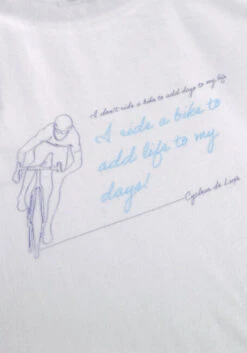 I don't ride a bike to add days to my life
I ride a bike to
add life to my
days!
Cyclista de Luxe